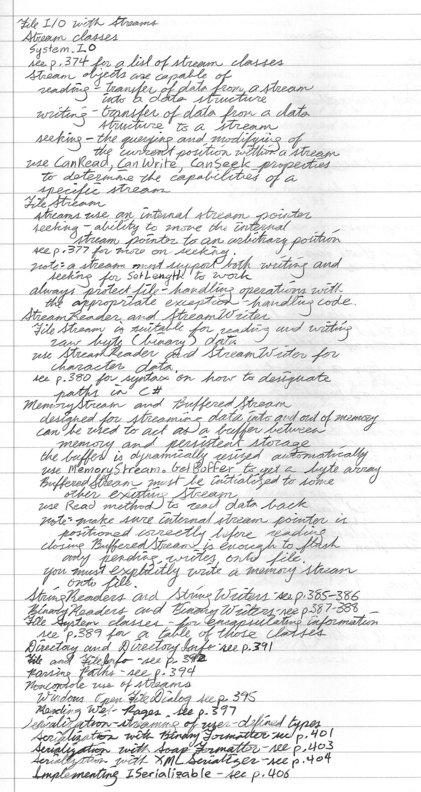 File I/O with Streams
Stream classes
System.IO
see p.374 for a list of stream classes
Stream objects are capable of
reading - transfer of data from a stream
into a data structure
writing - transfer of data from a data
structure to a stream
seeking - the querying and modifying of
the current position within a stream
use CanRead, CanWrite, CanSeek properties
to determine the capabilities of a
specific stream
FileStream
streams use an internal stream pointer
seeking - ability to move the internal
stream pointer to an arbitrary position
see p.377 for more on seeking.
note: a stream must support both writing and
seeking for SetLength to work
always protect file-handling operations with
the appropriate exception-handling code.
StreamReader and StreamWriter
FileStream is suitable for reading and writing
raw byte (binary) data
use StreamReader and StreamWriter for
character data.
see p.380 for syntax on how to designate
paths in C#
MemoryStream and BufferedStream
designed for streaming data into and out of memory
can be used to act as a buffer between
memory and persistent storage
the buffer is dynamically resized automatically
use MemoryStream.GetBuffer to get a byte array
BufferedStream must be initialized to some
other existing stream
use Read method to read data back
note: make sure internal stream pointer is
positioned correctly before reading
closing BufferedStream is enough to flush
any pending writes onto file.
you must explicitly write a memory stream
onto file.
StringReaders and StringWriters - see p.385-386
BinaryReaders and BinaryWriters - see p.387-388
File System classes - for encapsulating information
see p.389 for a table of those classes
Directory and DirectoryInfo - see p.391
File and FileInfo - see p.392
Parsing Paths - see p.394
Nonconsole use of streams
Windows OpenFileDialog see p.395
Reading Web Pages. see p.397
Serialization - streaming of user-defined types
Serialization with BinaryFormatter see p.401
Serialization with SoapFormatter - see p.403
Serialization with XMLSerializer - see p.404
Implementing ISerializable - see p.406